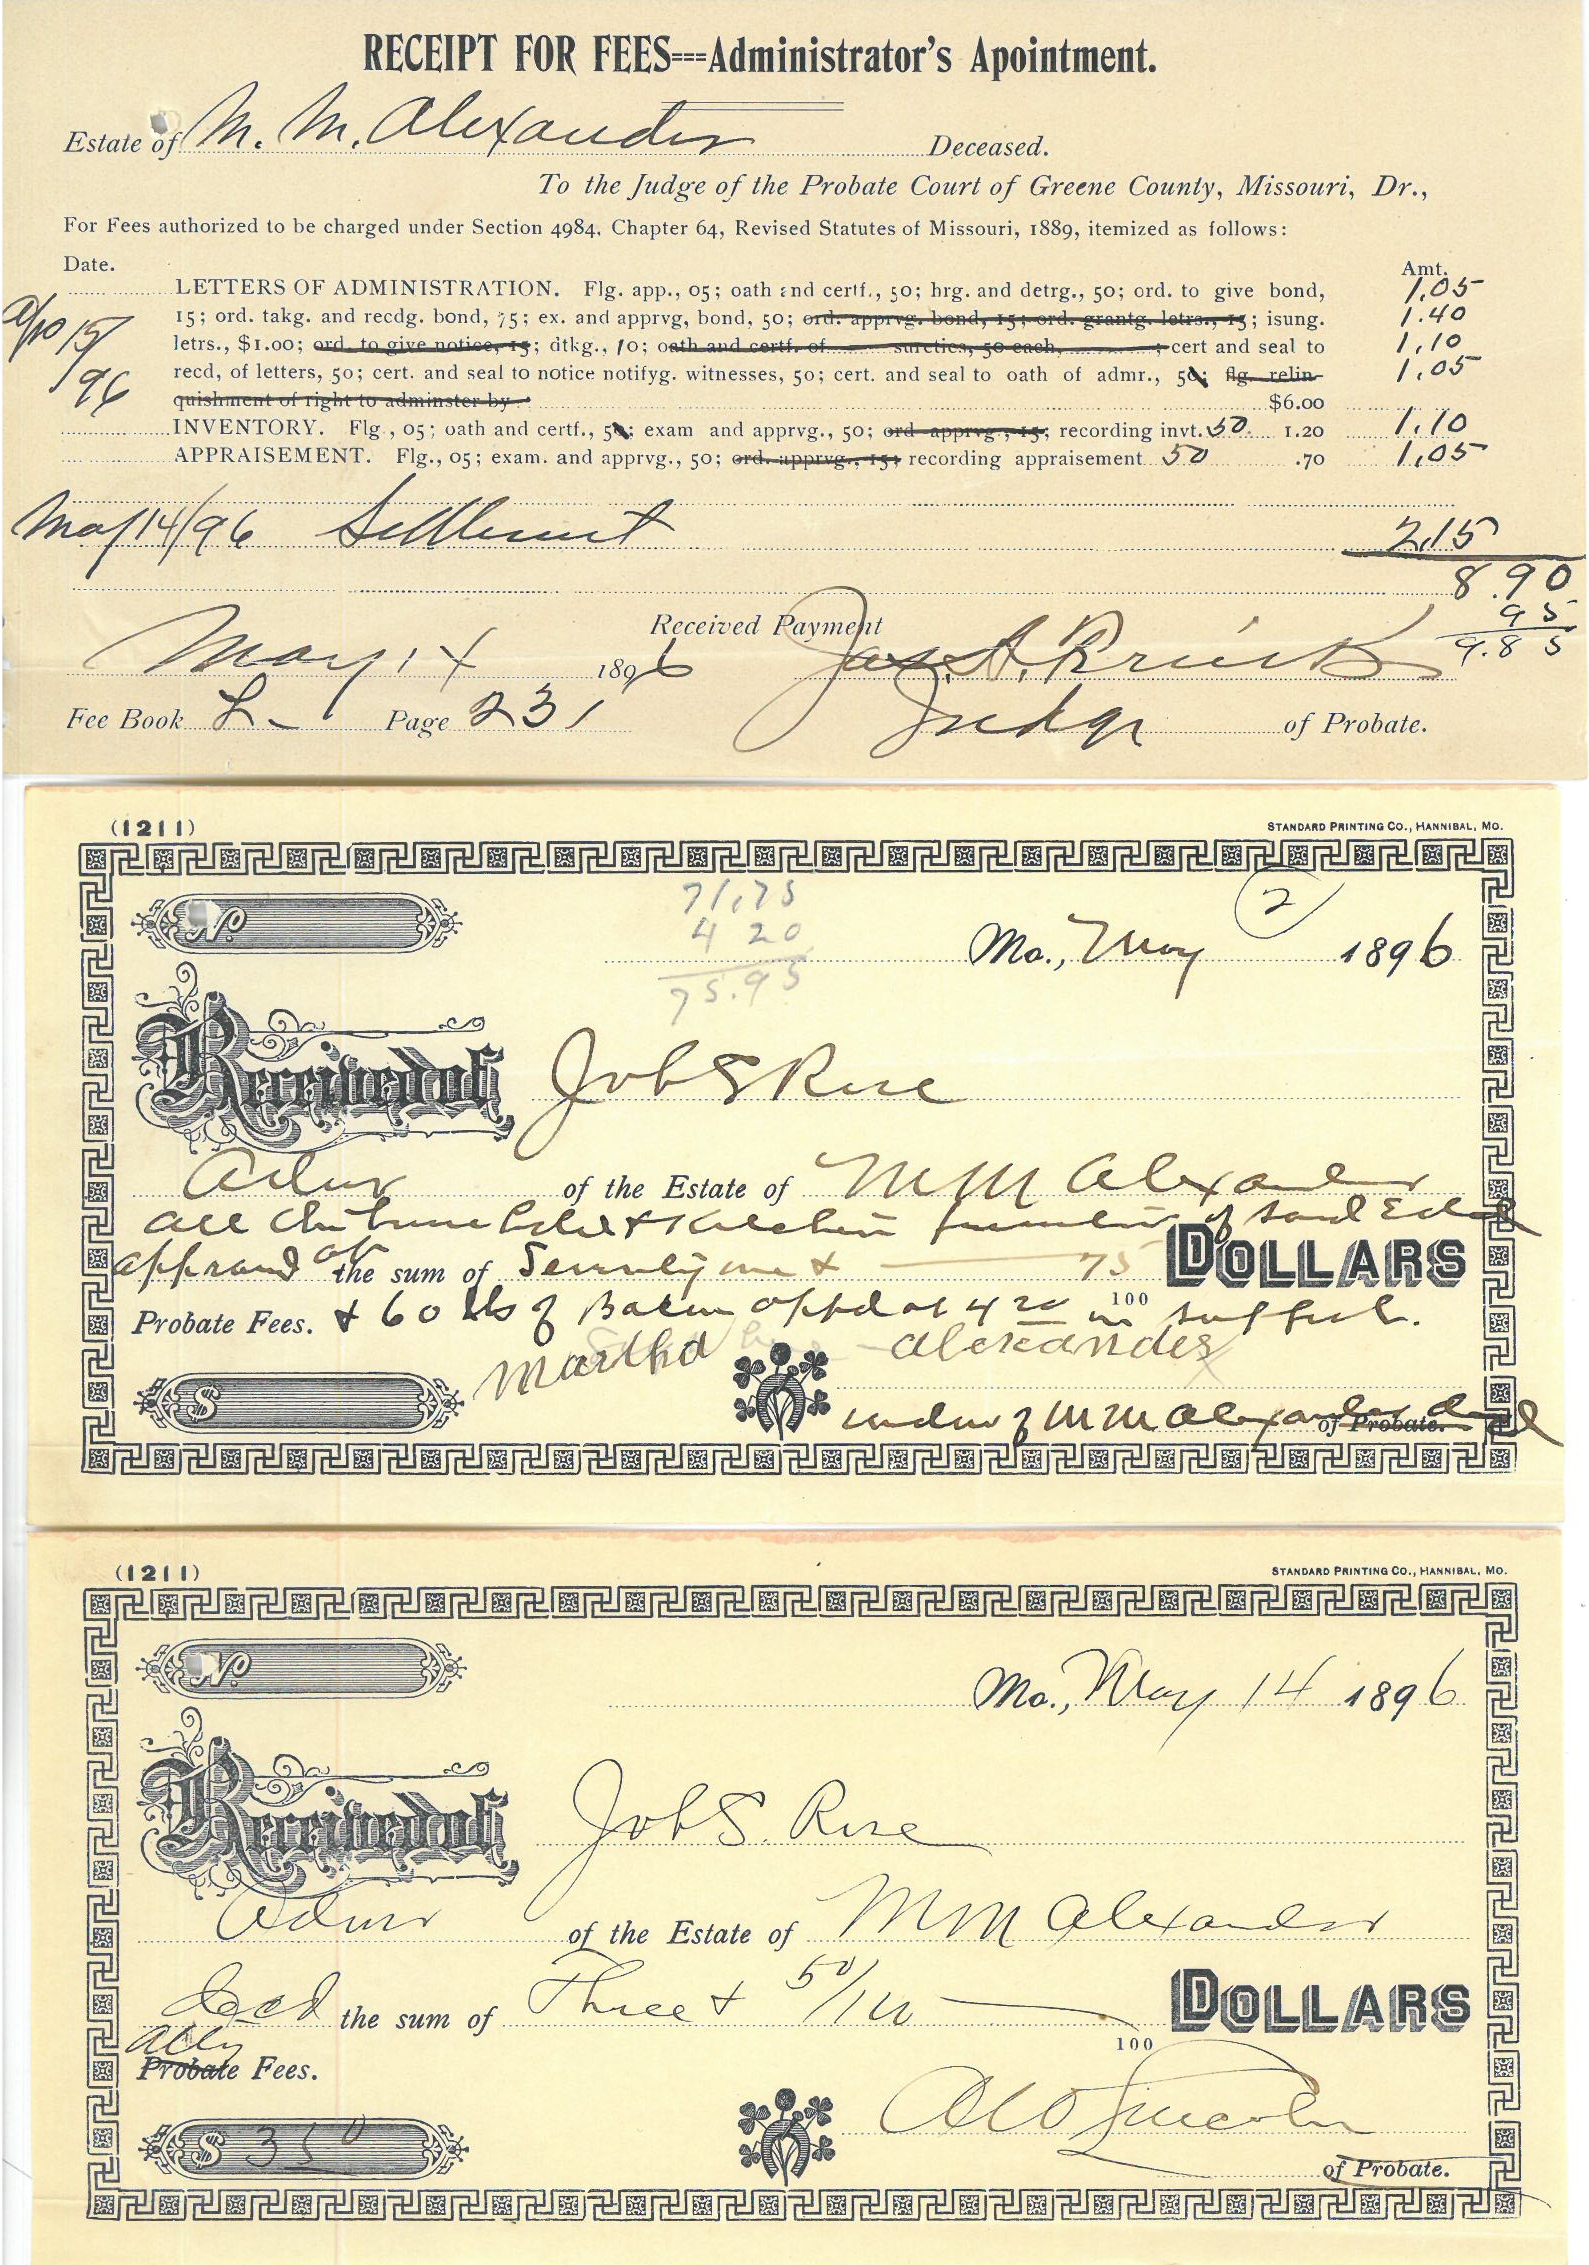 RECEIPT FOR FEES===Administrator's Apointment.
Estate of M. M. Alexander Deceased.
To the Judge of the Probate Court of Greene County, Missouri, Dr.,
For Fees authorized to be charged under Section 4984, Chapter 64, Revised Statutes of Missouri, 1889, itemized as follows:
Date. Amt.
LETTERS OF ADMINISTRATION. Flg. app., 05; oath and certf., 50; hrg. and detrg., 50; ord. to give bond, 1.05
15; ord. takg. and recdg. bond, 75; ex. and apprvg, bond, 50; ord. apprvg. bond, 15; ord. grantg. letrs., 15; isung. 1.40
Apr 15/96
letrs., $1.00; ord. to give notice, 15; dtkg., 10; oath and certf. of sureties, 50 each, ; cert and seal to 1,10
recd, of letters, 50; cert. and seal to notice notifyg. witnesses, 50; cert. and seal to oath of admr., 50; flg. relin- 1.05
quishment of right to adminster by $6.00
INVENTORY. Flg., 05; oath and certf., 50; exam and apprvg., 50; ord apprvg., 15; recording invt. 50 1.20 1.10
APPRAISEMENT. Flg., 05; exam. and apprvg., 50; ord. apprvg., 15; recording appraisement 50 .70 1.05
May 14/96 Settlement 2.15
8.90
95
9.85
Received Payment
May 14 1896 Jas. A.
Fee Book L Page 231 Judge of Probate.
(1211) STANDARD PRINTING CO., HANNIBAL, MO.
71,75
4 20
75.95
No. Mo., May 2 1896
Received of Job S Rose
Admr of the Estate of M M Alexander
all & Kitchen furniture of said Estate
appraised at the sum of Seventy one & 75 DOLLARS
100
Probate Fees. & 60 lbs of Bacon appd at 4 20 in full.
Martha Alexander
$ widow of M M Alexander decd of Probate.
(1211) STANDARD PRINTING CO., HANNIBAL, MO.
No. Mo., May 14 1896
Received of Job S. Rose
Admr of the Estate of M M Alexander
decd the sum of Three & 50/100 DOLLARS
100
Atty
Probate Fees.
Lincoln
$ 3 50 of Probate.